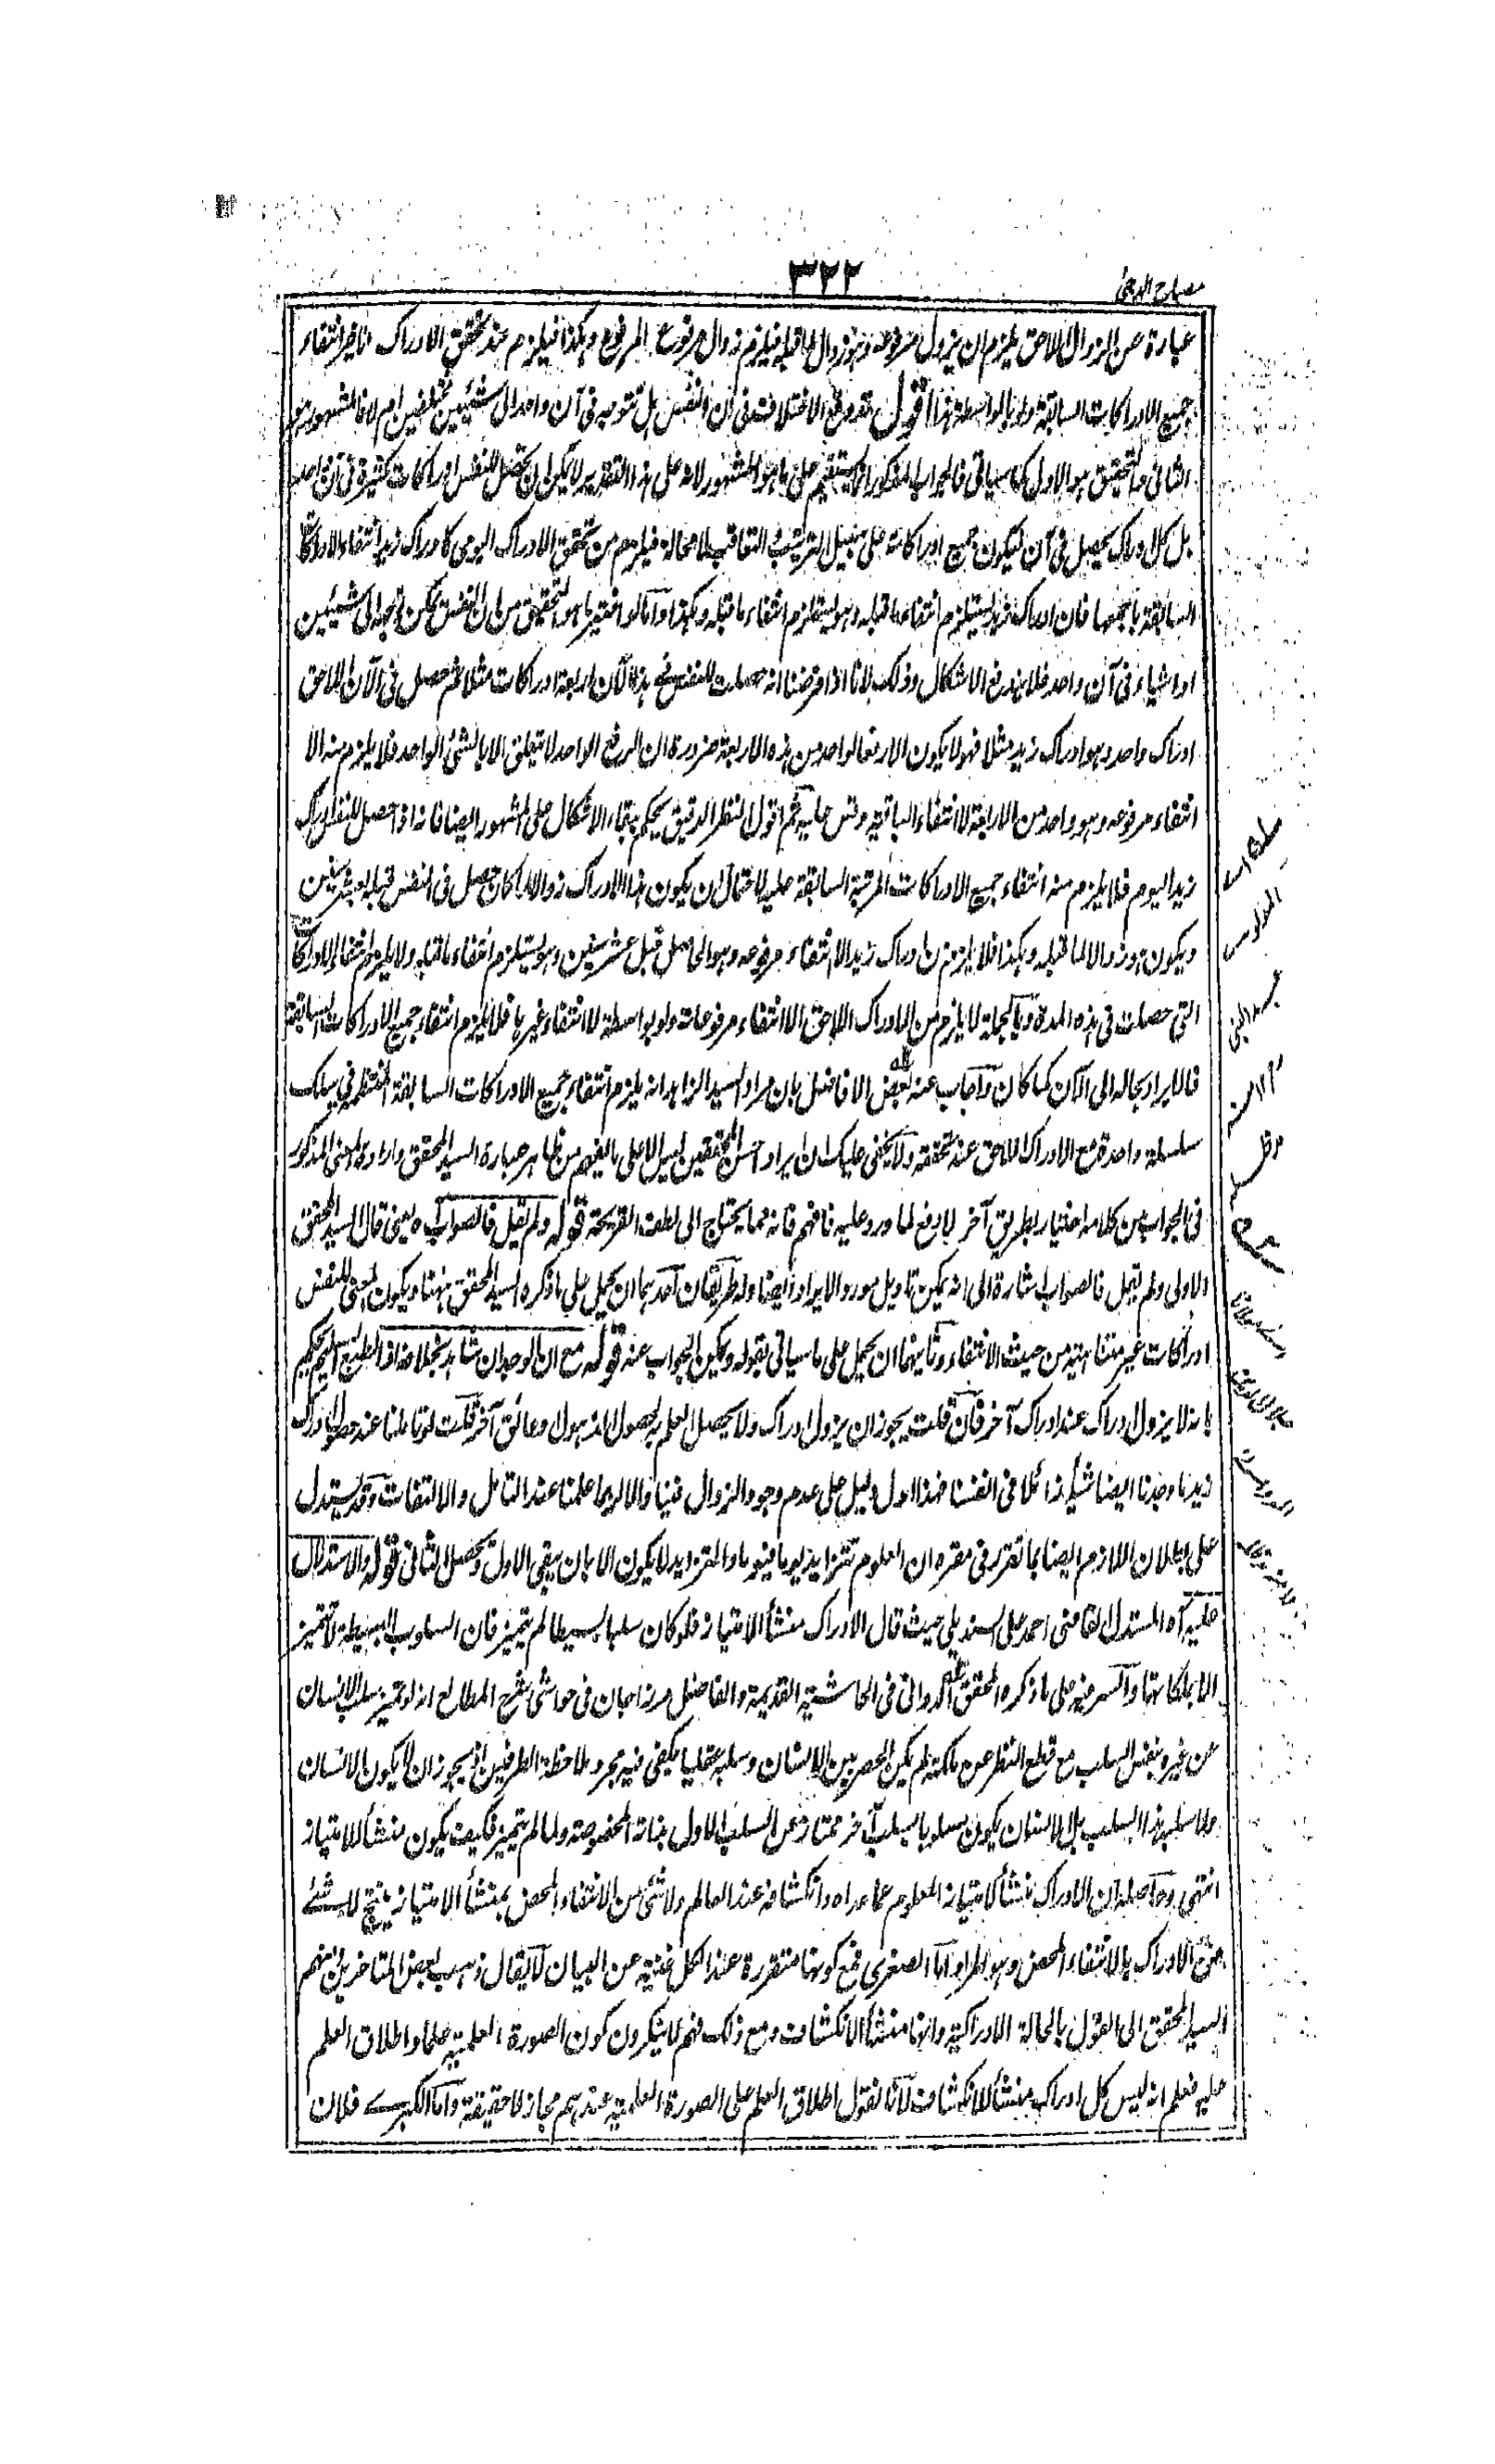 مصباح الدجى
٣٢٢
عبارة عن الزوال اللاحق يلزم ان يزول مرفوعه وهو زوال لما قبله فيلزم زوال مرفوع المرفوع وهكذا فيلزم عند تحقق الادراك الاخير انتفاء
جميع الادراكات السابقة ولو بالواسطة هذا اقول قد وقع الاختلاف في ان النفس هل تتوجه في آن واحد الى شيئين مختلفين ام لا فالمشهور هو
الثاني والتحقيق هو الاول كما سيأتي فالجواب المذكور انما يستقيم على ما هو المشهور لانه على هذا التقدير لا يمكن ان تحصل للنفس ادراكات كثيرة في آن واحد
بل كل ادراك يحصل في آن فيكون جميع ادراكاته على سبيل الترتيب والتعاقب لا محالة فيلزم من تحقق الادراك اليومي كادراك زيد انتفاء الادراكات
السابقة باجمعها فان ادراك زيد يستلزم انتفاء ما قبله وهو يستلزم انتفاء ما قبله وهكذا واما لو اختير ما هو التحقيق من ان النفس يمكن توجهها الى شيئين
او اشياء في آن واحد فلا يندفع الاشكال وذلك لانا اذا فرضنا انه حصلت للنفس في هذا الآن اربعة ادراكات مثلا ثم حصل في الآن اللاحق
ادراك واحد وهو ادراك زيد مثلا فهو لا يكون الا رفعا لواحد من هذه الاربعة ضرورة ان الرفع الواحد لا يتعلق الا بالشئ الواحد فلا يلزم منه الا
انتفاء مرفوعه وهو واحد من الاربعة لا انتفاء الباقية وقس عليه ثم اقول النظر الدقيق يحكم ببقاء الاشكال على المشهور ايضا فانه اذا حصل للنفس ادراك
زيد اليوم فلا يلزم منه انتفاء جميع الادراكات المرتبة السابقة عليه لاحتمال ان يكون هذا الادراك زوالا لادراك حصل في النفس قبله بعشر سنين
ويكون هو زوالا لما قبله وهكذا فلا يلزم من ادراك زيد الا انتفاء مرفوعه وهو الحاصل قبل عشر سنين وهو يستلزم انتفاء ما قبله ولا يلزم انتفاء الادراكات
التي حصلت في هذه المدة وبالجملة لا يلزم من الادراك اللاحق الا انتفاء مرفوعاته ولو بواسطة لا انتفاء غيرها فلا يلزم انتفاء جميع الادراكات السابقة
فالايراد بحاله الى الآن كما كان واجاب عنه بعض الافاضل بان مراد السيد الزاهد انه يلزم انتفاء جميع الادراكات السابقة المنتظمة في سلك
سلسلة واحدة مع الادراك اللاحق عند تحققه ولا يخفى عليك ان ايراد احسن المحققين ليس الا على ما يفهم من ظاهر عبارة السيد المحقق وارادة المعنى المذكور
في الجواب من كلامه اختيار لطريق آخر لا دفع لما ورد عليه فافهم فانه مما يحتاج الى لطف القريحة قوله ولم يقل فالصواب آه يعني قال السيد المحقق
الاولى ولم يقل فالصواب اشارة الى انه يمكن تاويل مورد الايراد ايضا وله طريقان احدهما ان يحمل على ما ذكره السيد المحقق ههنا ويكون المعنى للنفس
ادراكات غير متناهية من حيث الانتفاء وثانيهما ان يحمل على ما سياتي بقوله ويمكن الجواب عنه قوله مع ان الوجدان شاهد بخلافه اذ الطبع السليم يحكم
بانه لا يزول ادراك عند ادراك آخر فان قلت يجوز ان يزول ادراك ولا يحصل العلم به لحصول الذهول وعائق آخر قلت لو تاملنا عند حصول ادراك
زيد ما وجدنا ايضا شيئا زائلا في انفسنا فهذا ادل دليل على عدم وجود الزوال فينا والا لربما علمنا عند التامل والالتفات وقد يستدل
على بطلان اللازم ايضا بما تقرر في مقره ان العلوم تتزايد يوما فيوما والتزايد لا يكون الا بان يبقى الاول ويحصل الثاني قوله والاستدلال
عليه آه المستدل القاضي احمد على السنديلي حيث قال الادراك منشأ الامتياز فلو كان سلبا بسيطا لم يتميز فان السلوب البسيطة لا تتميز
الا بملكاتها والسر فيه على ما ذكره المحقق الدواني في الحاشية القديمة والفاضل مرزاجان في حواشي شرح المطالع انه لو تميز سلب الانسان
عن غيره بنفس السلب مع قطع النظر عن ملكته لم يكن الحصر بين الانسان وسلبه عقليا يكفي فيه مجرد ملاحظة الطرفين اذ يجوز ان لا يكون الانسان
ولا سلبه بهذا السلب بل الانسان يكون مسلوبا بسلب آخر ممتاز عن السلب الاول بذاته المخصوصة ولما لم يتميز فكيف يكون منشأ للامتياز
انتهى وحاصله ان الادراك منشأ لامتياز المعلوم عما عداه وانكشافه عند العالم ولا شئ من الانتفاء المحض بمنشأ الامتياز ينتج لا شئ
من الادراك بالانتفاء المحض وهو المراد اما الصغرى فمع كونها متقررة عند الكل غنية عن البيان لا يقال ذهب بعض المتاخرين منهم
السيد المحقق الى القول بالحالة الادراكية وانها منشأ الانكشاف ومع ذلك فهم لا ينكرون كون الصورة العلمية علما واطلاق العلم
عليه فعلم انه ليس كل ادراك منشأ للانكشاف لانا نقول اطلاق العلم على الصورة العلمية عندهم مجاز لا حقيقة واما الكبرى فلان